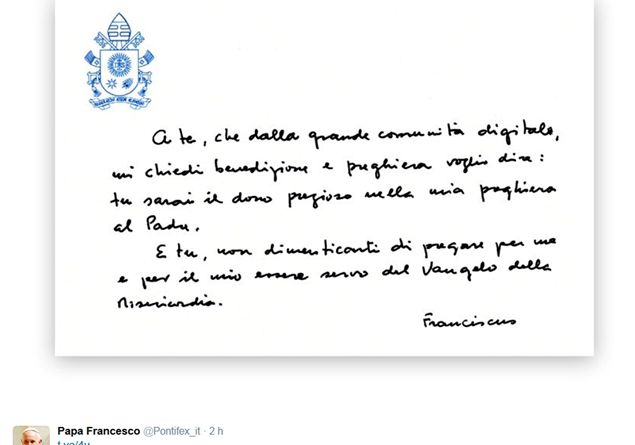 A te, che dalla grande comunità digitale,
mi chiedi benedizione e preghiera voglio dire:
tu sarai il dono prezioso nella mia preghiera
al Padre.
E tu, non dimenticarti di pregare per me
e per il mio essere servo del Vangelo della
Misericordia.
Franciscus
Papa Francesco @Pontifex_it · 2 h